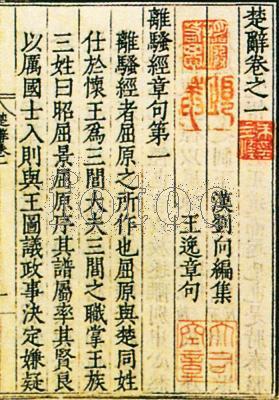 楚辭卷之一
漢劉向編集
王逸章句
離騷經章句第一
離騷經者屈原之所作也屈原與楚同姓
仕於懷王為三閭大夫三閭之職掌王族
三姓曰昭屈景屈原序其譜屬率其賢良
以厲國士入則與王圖議政事決定嫌疑